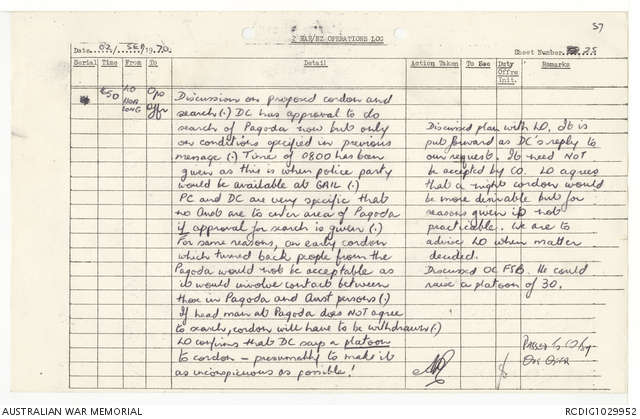 57
2 RAR/NZ OPERATIONS LOG
Date 02/SEP/1970
Sheet Number 25
Serial Time From To Detail Action Taken To See Duty Offrs Init. Remarks
LO Ops Offr
Discussions on proposed cordon and
search (.) DC has approval to do
search of Pagoda now but only
on conditions specified in previous
message (.) Time of 0800 has been
given as this is when police party
would be available at GAIL (.)
PC and DC are very specific that
no Aust are to enter area of Pagoda
if approval for search is given (.)
For same reasons, an early cordon
which turned back people from the
Pagoda would not be acceptable as
it would involve contact between
those in Pagoda and Aust persons (.)
If head man at Pagoda does NOT agree
to search, cordon will have to be withdrawn (.)
LO confirms that DC says a platoon
to cordon – presumably to make it
as inconspicuous as possible!
Discussed plan with LO. It is
put forward as DC's reply to
our request. It need NOT
be accepted by CO. LO agrees
that a night cordon would
be more desirable but for
reasons given is not
practicable. We are to
advise LO when matter
decided.
Discussed OC FSB. He could
raise a platoon of 30.
PASSED TO CO by
AUSTRALIAN WAR MEMORIAL
RCDIG1029952